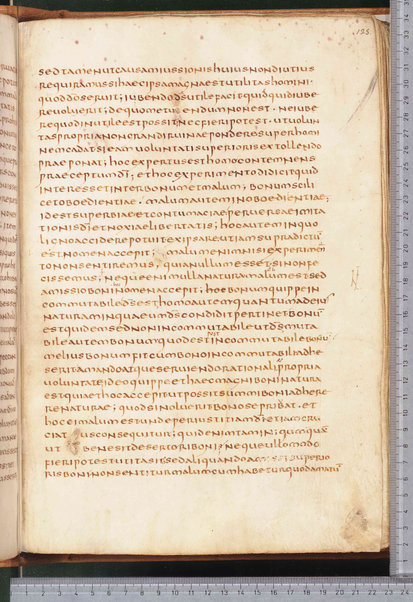 125
sed tamen ut causam iussionis huius non diutius
requiramus si haec ipsa magna est utilitas homini
quod do seruit; iubendo ds utile facit quidquid iube
re uoluerit; de quo metuendum non est. ne iube
re quod inutile est possit nec fieri potest ut uolun
tas propria non grandi ruinae pondere super homi
nem cadat si eam uoluntati superioris extollendo
praeponat; hoc expertus est homo contemnens
praeceptum di; et hoc experimento didicit quid
interesset inter bonum et malum; bonum scili
cet oboedientiae. malum autem inoboedientiae;
id est superbiae et contumaciae peruersae imita
tionis di et noxiae libertatis; hoc autem in quo
ligno accidere potuit ex ipsa re ut iam supra dictum
est nomen accepit; malum enim nisi experimen
to non sentiremus, quia nullum esset si non fe
cissemus, neque enim ulla natura mali est sed
amissio boni hoc nomen accepit; hoc bonum quippe in
commutabile ds est homo autem quantum ad eius
naturam in qua eum ds condidit pertinet bonum
est quidem sed non incommutabile ut ds muta
bile autem bonum quod est post incommutabile bonum
melius bonum fit cum bono incommutabili adhe
serit amando atque seruiendo rationali et propria
uoluntate ideo quippe et haec magni boni natura
est quia et hoc accepit ut possit summi boni adhere
re naturae; quod si noluerit bono se priuat. et
hoc ei malum est unde per iustitiam di etiam cru
ciatus consequitur; quid enim tam iniquum quam
ut bene sit desertori boni; neque ullo modo
fieri potest ut ita sit sed aliquando amissi superio
ris boni non sentitur malum cum habetur quod amatum